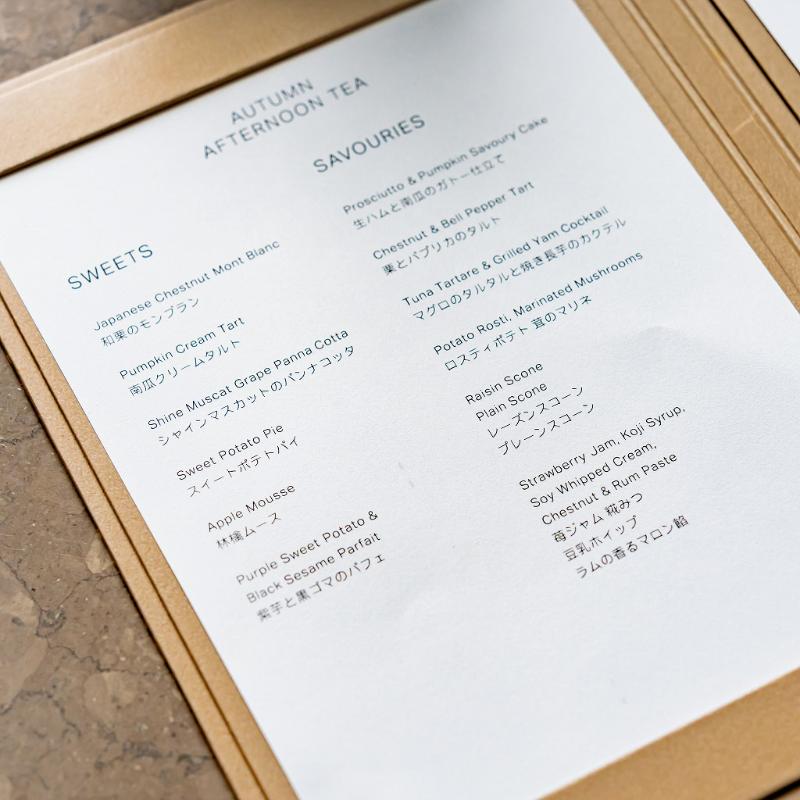 AUTUMN
AFTERNOON TEA
SWEETS
Japanese Chestnut Mont Blanc
和栗のモンブラン
Pumpkin Cream Tart
南瓜クリームタルト
Shine Muscat Grape Panna Cotta
シャインマスカットのパンナコッタ
Sweet Potato Pie
スイートポテトパイ
Apple Mousse
林檎ムース
Purple Sweet Potato &
Black Sesame Parfait
紫芋と黒ゴマのパフェ
SAVOURIES
Prosciutto & Pumpkin Savoury Cake
生ハムと南瓜のガトー仕立て
Chestnut & Bell Pepper Tart
栗とパプリカのタルト
Tuna Tartare & Grilled Yam Cocktail
マグロのタルタルと焼き長芋のカクテル
Potato Rosti, Marinated Mushrooms
ロスティポテト 茸のマリネ
Raisin Scone
Plain Scone
レーズンスコーン
プレーンスコーン
Strawberry Jam, Koji Syrup,
Soy Whipped Cream,
Chestnut & Rum Paste
苺ジャム 糀みつ
豆乳ホイップ
ラムの香るマロン餡